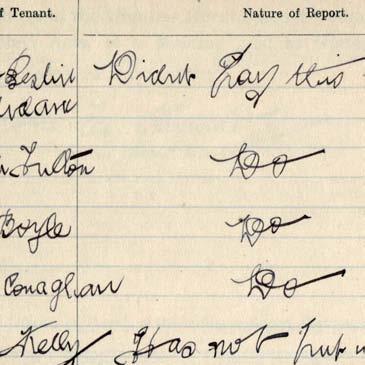 f Tenant. Nature of Report.
Leslie Didnt Pay this
Fulton Do
Boyle Do
Conaghan Do
Kelly Has not Put